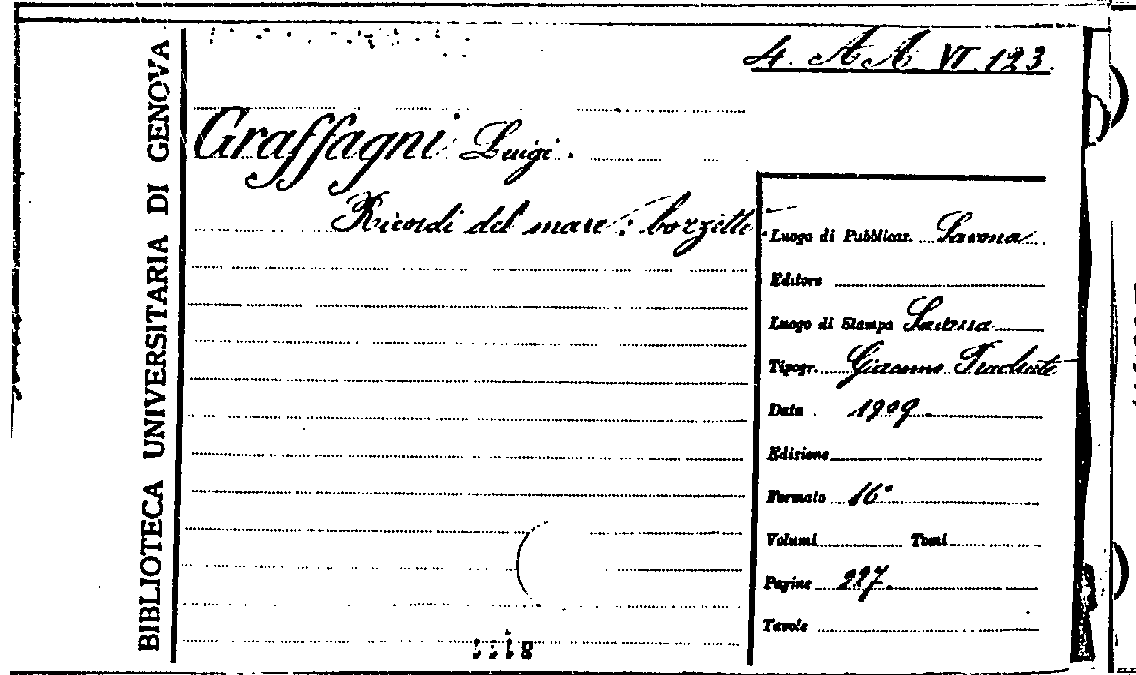 4. A A VI 123.
BIBLIOTECA UNIVERSITARIA DI GENOVA
Graffagni Luigi.
Ricordi del mare: bozzetti.
Luogo di Pubblicaz. Savona
Editore
Luogo di Stampa Savona
Tipogr. Giacomo
Data 1909
Edizione
Formato 16°
Volumi Tomi
Pagine 227.
Tavole